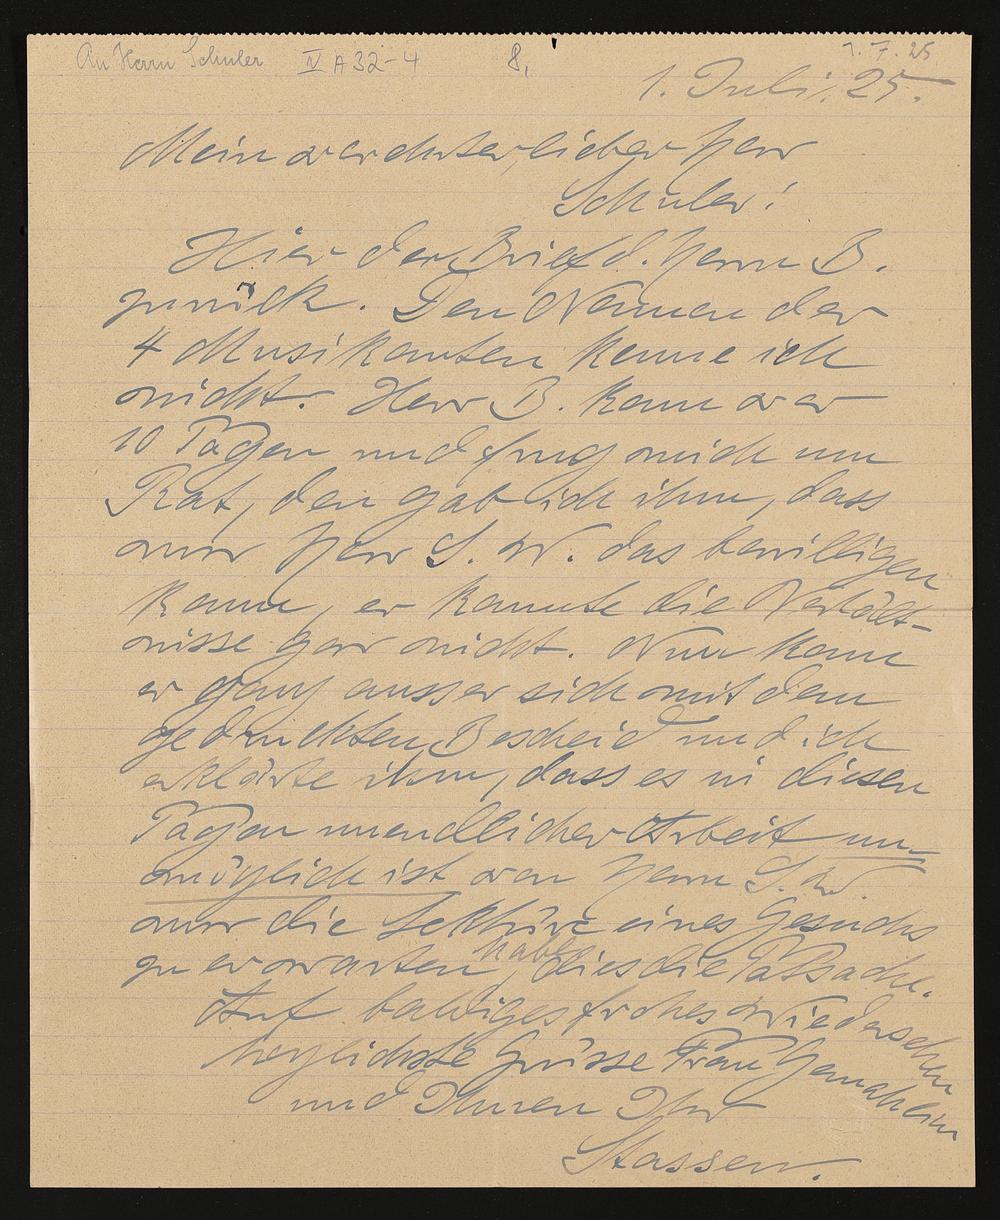 An Herrn Schuler IV A 32-4 8, 1.7.25
1. Juli. 25.
Mein verehrter, lieber Herr
Schuler!
Hier der Brief d. Herrn B.
zurück. Den Namen der
4 Musikanten kenne ich
nicht. Herr B. kam vor
10 Tagen und frug mich um
Rat, den gab ich ihm, dass
nur Herr S. W. das bewilligen
kann, er kannte die Verhält-
nisse gar nicht. Nun kam
er ganz ausser sich mit dem
gedruckten Bescheid und ich
erklärte ihm, dass es in diesen
Tagen unendlicher Arbeit un-
möglich ist von Herrn S. W.
nur die Lektüre eines Gesuchs
zu erwarten, dies die Tatsache.
Auf baldiges frohes Wiedersehen
herzlichste Grüsse Frau Gemahlin
und Ihnen Ihr
Stassen.